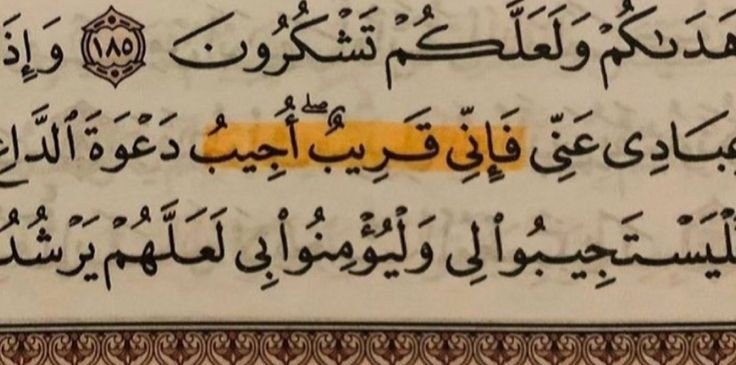 هَدَىٰكُمْ وَلَعَلَّكُمْ تَشْكُرُونَ ١٨٥ وَإِذَ
عِبَادِى عَنِّى فَإِنِّى قَرِيبٌ ۖ أُجِيبُ دَعْوَةَ ٱلدَّاعِ
لْيَسْتَجِيبُوا۟ لِى وَلْيُؤْمِنُوا۟ بِى لَعَلَّهُمْ يَرْشُدُ